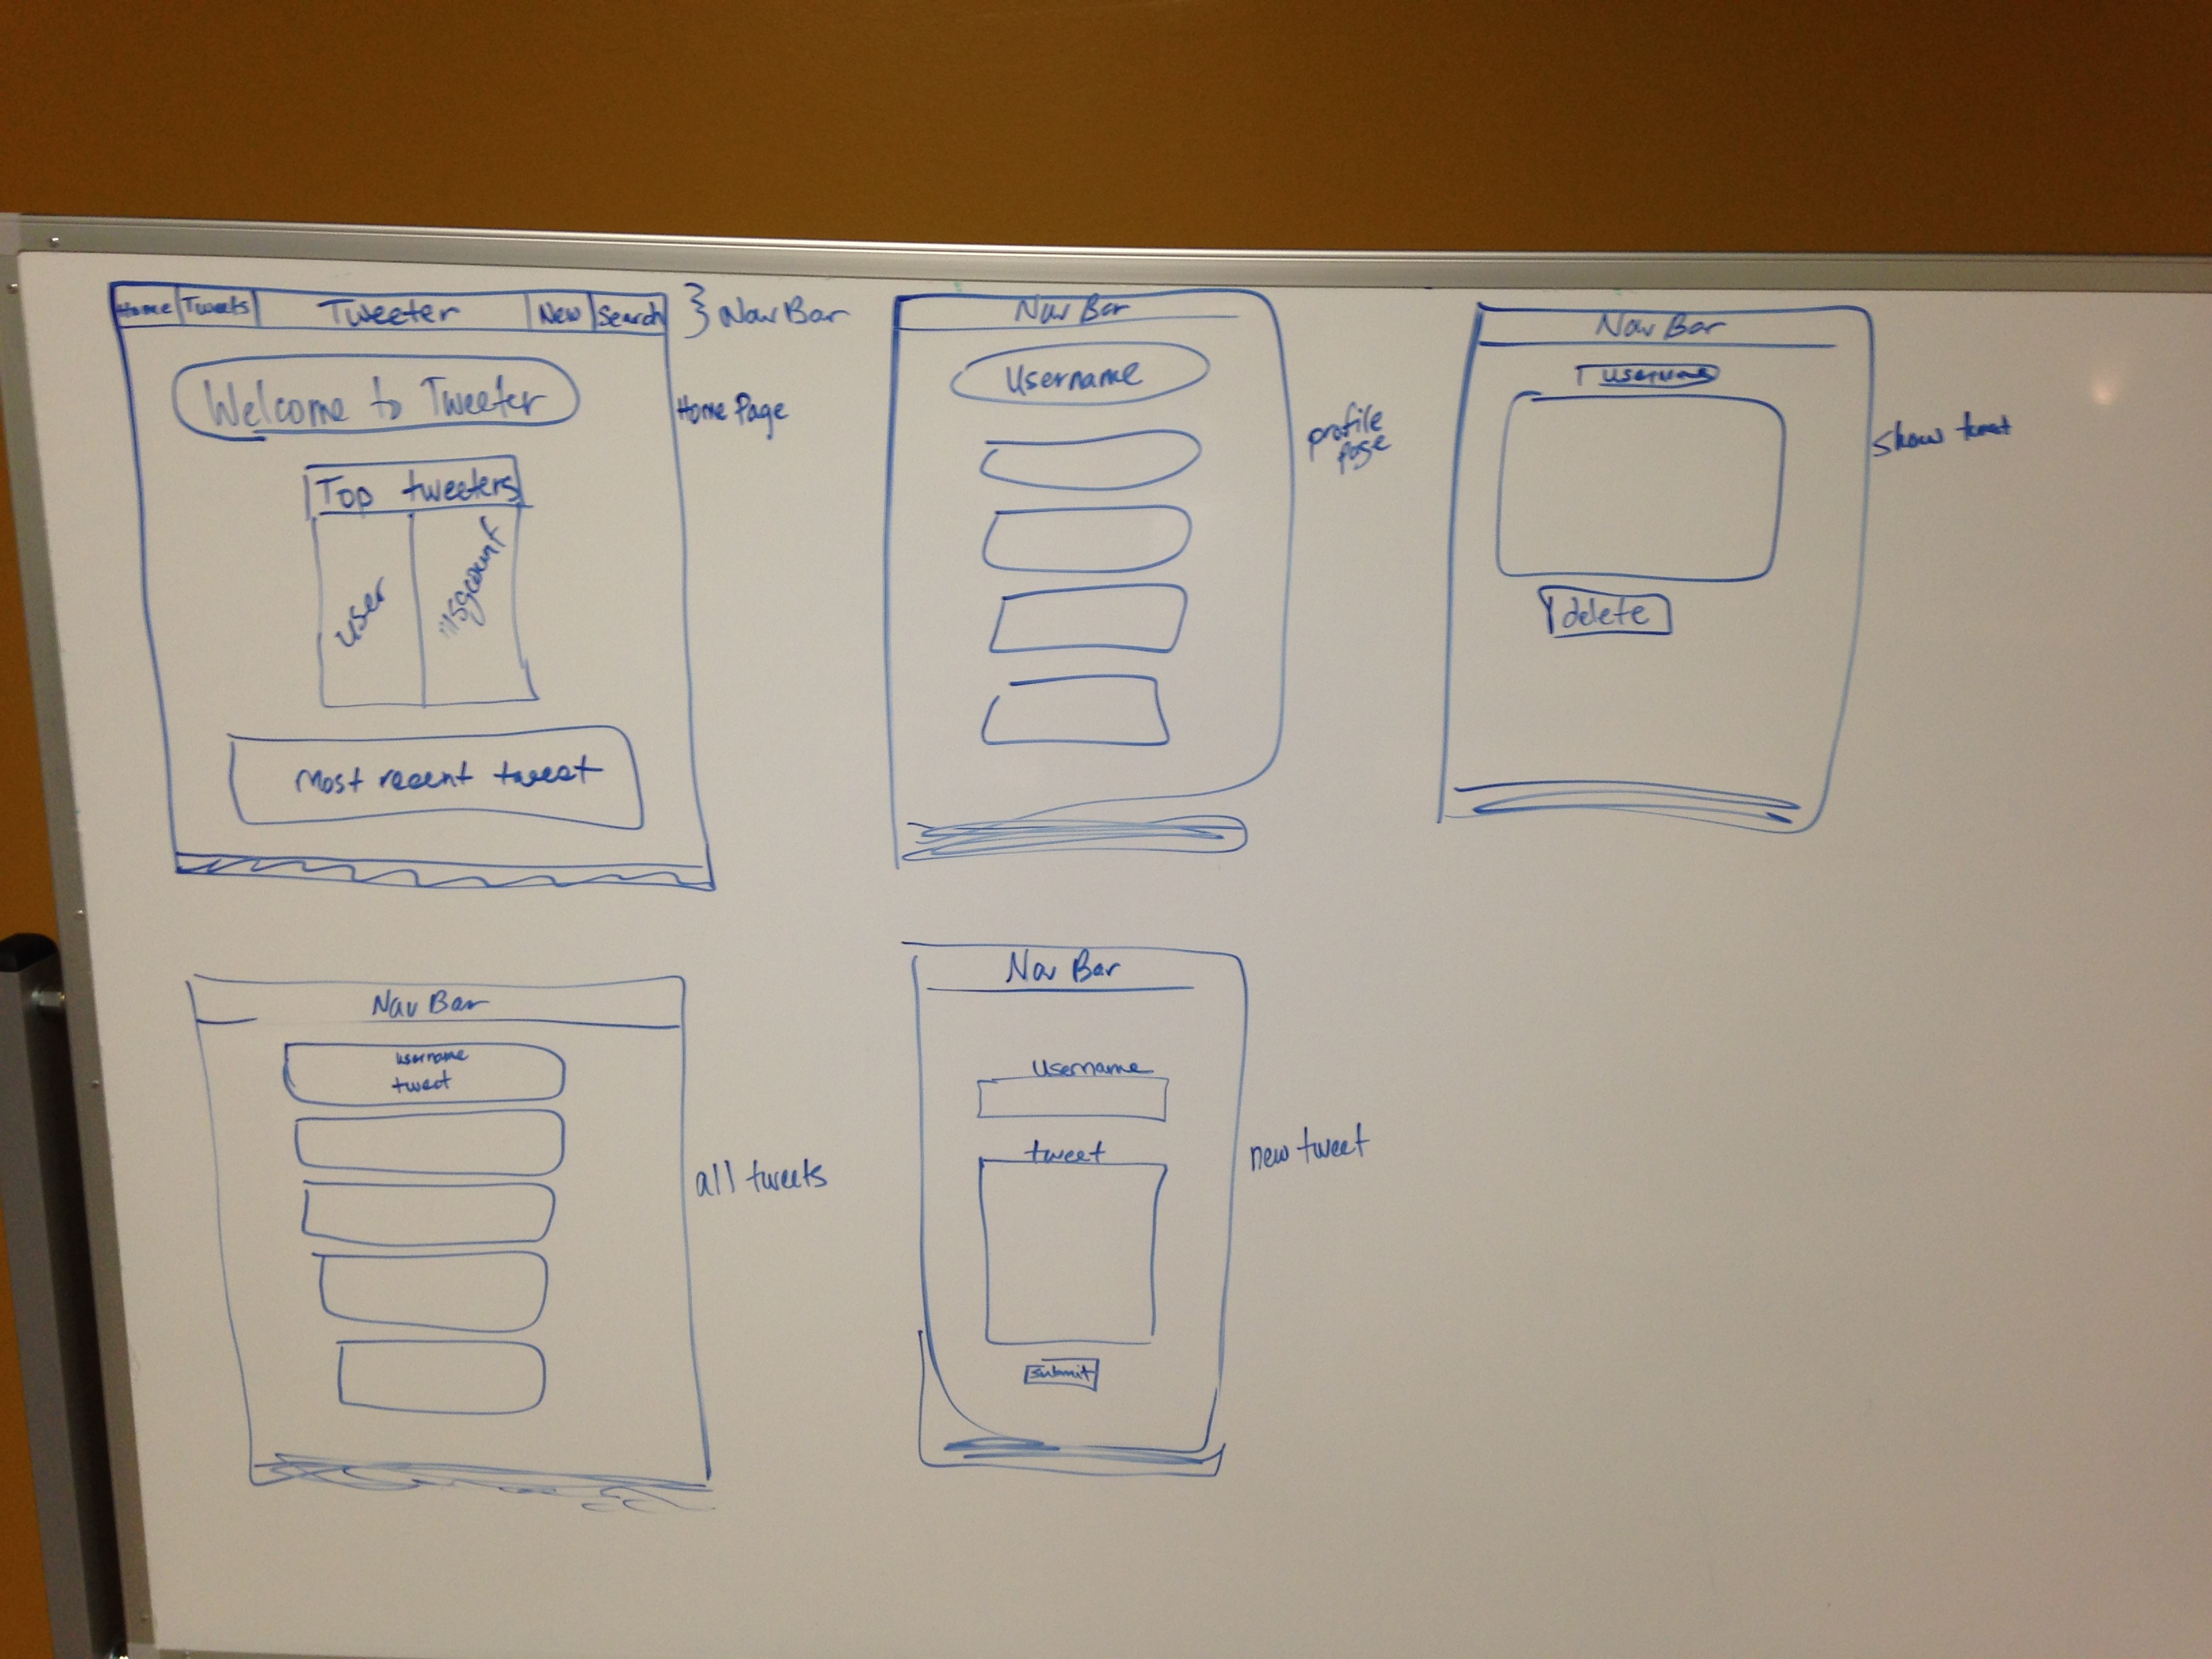 Home Tweets Tweeter New Search
Nav Bar
Welcome to Tweeter
Home Page
Top tweeters
user
msgcount
Most recent tweet
Nav Bar
Username
profile
page
Nav Bar
username
delete
show tweet
Nav Bar
username
tweet
all tweets
Nav Bar
Username
tweet
submit
new tweet